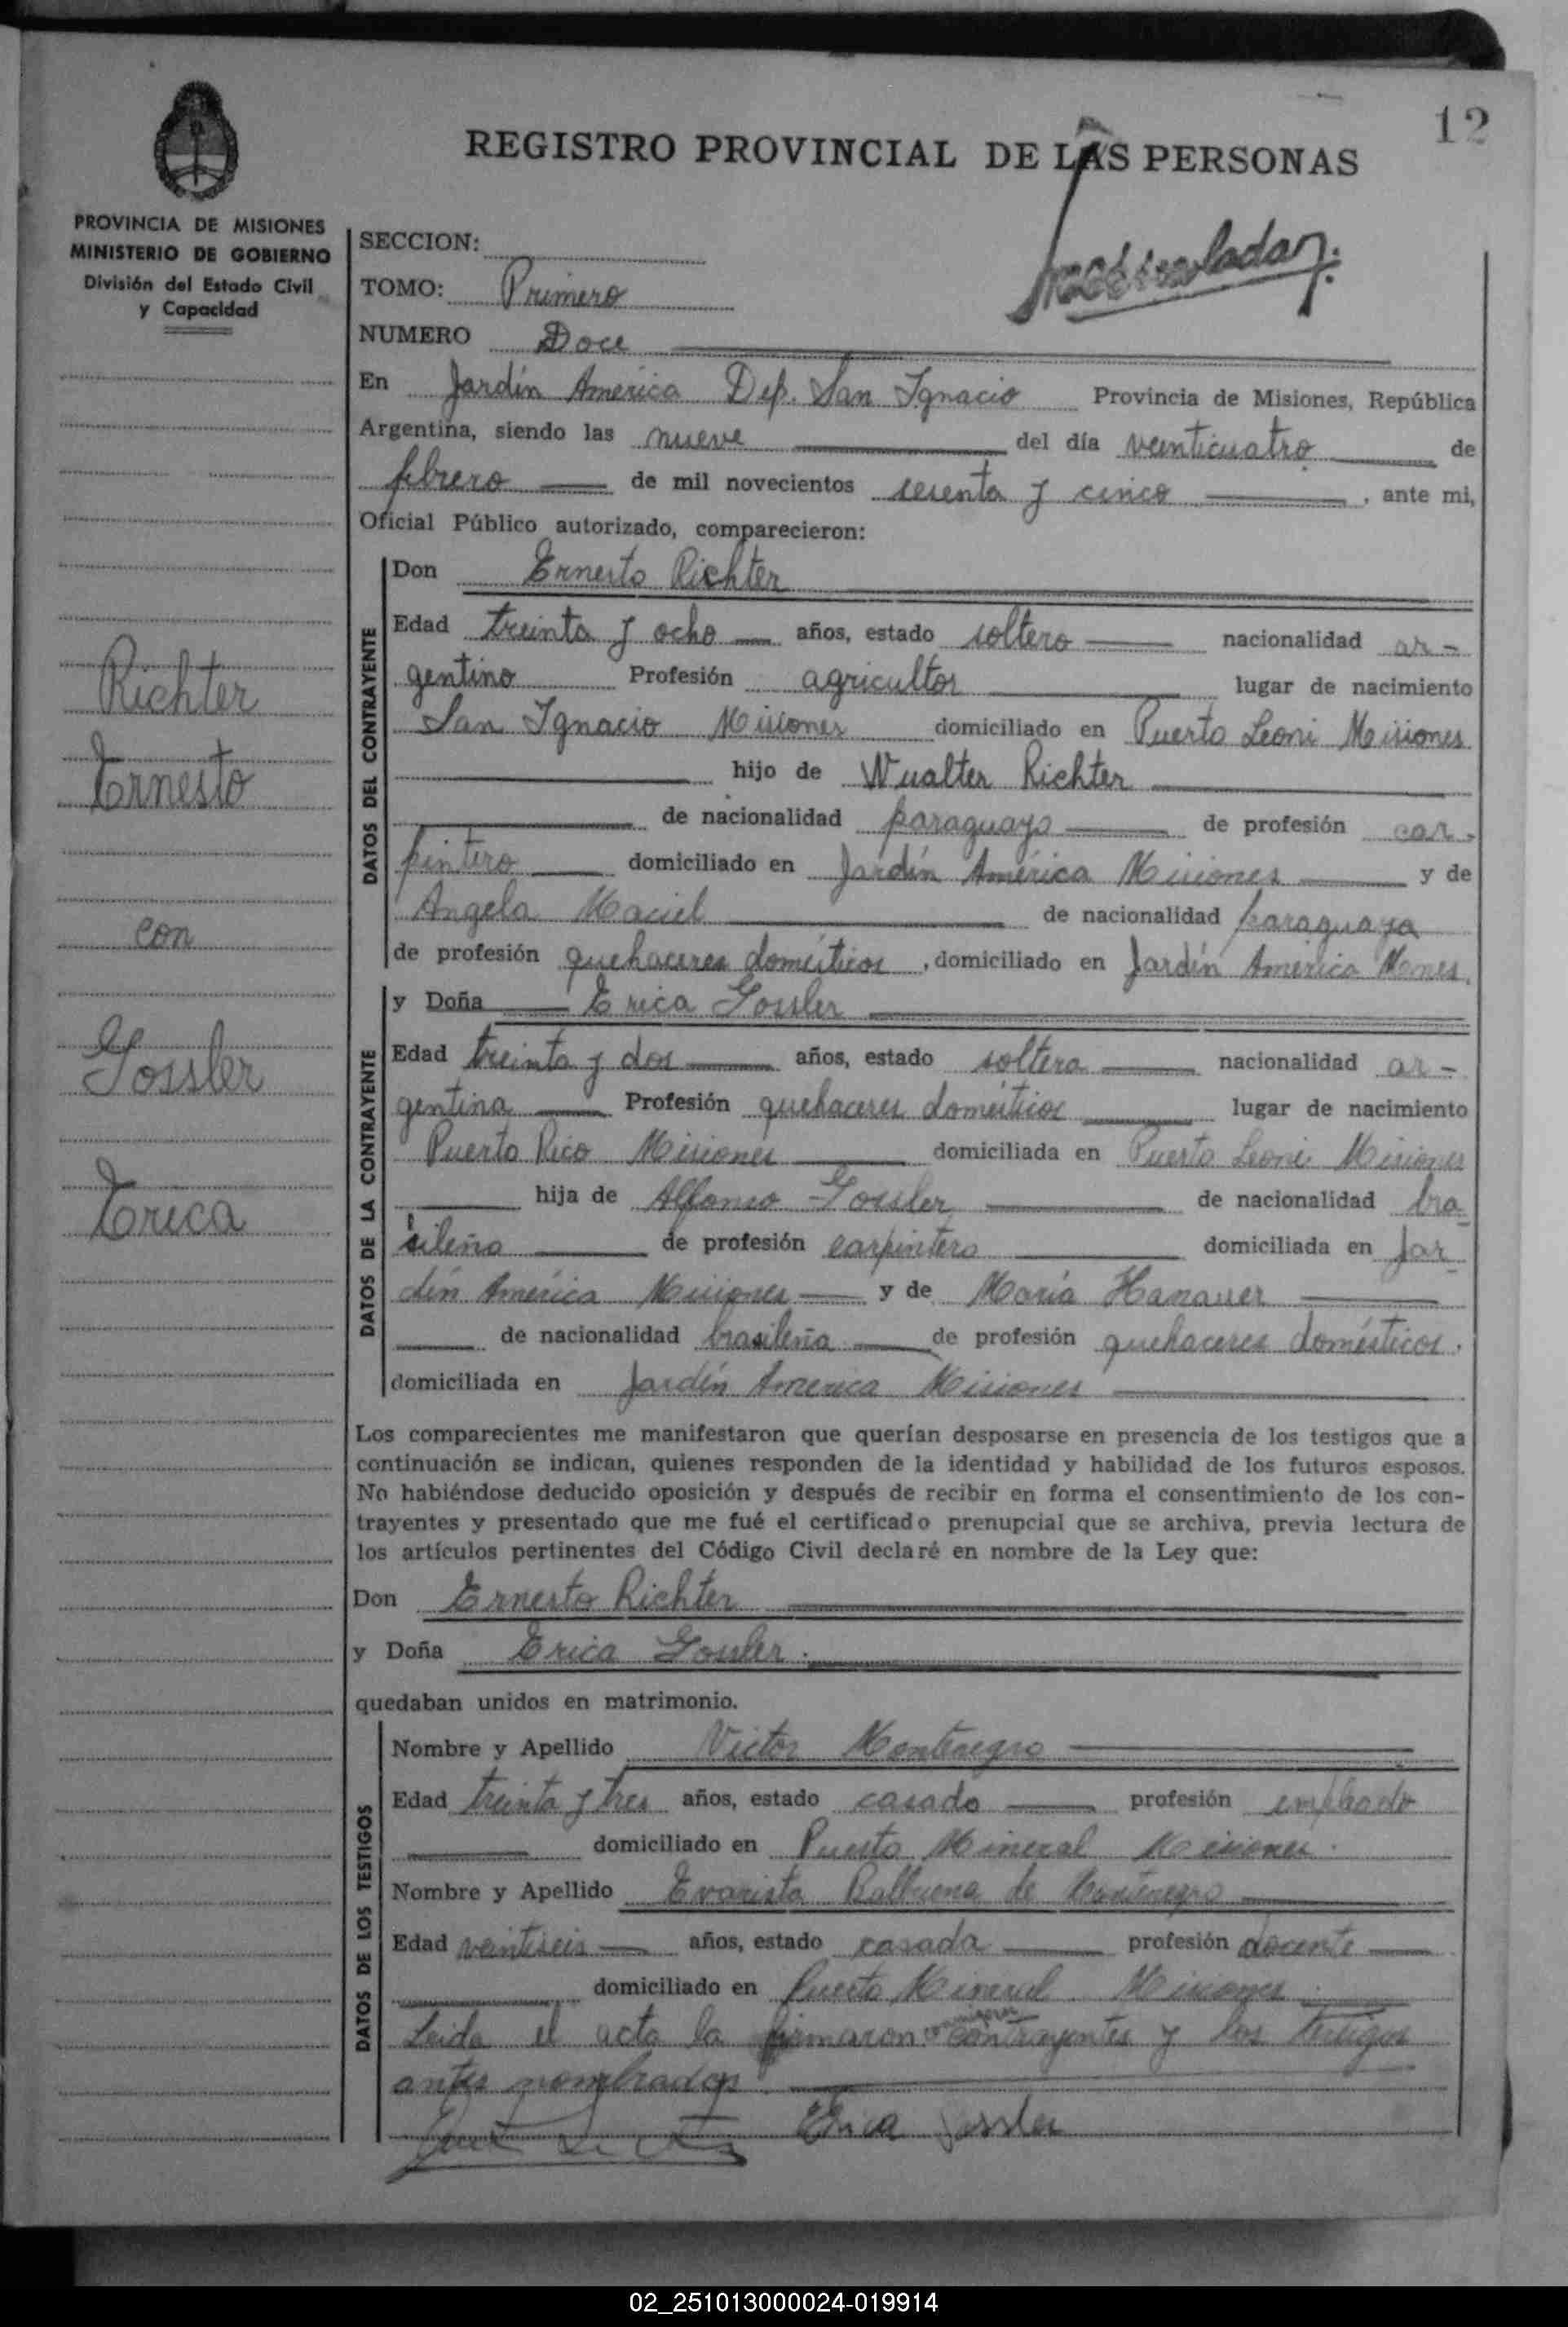 12
REGISTRO PROVINCIAL DE LAS PERSONAS
PROVINCIA DE MISIONES
MINISTERIO DE GOBIERNO
División del Estado Civil
y Capacidad
SECCION:
TOMO: Primero
NUMERO Doce
En Jardín América Dep. San Ignacio Provincia de Misiones, República
Argentina, siendo las nueve del día veinticuatro de
febrero de mil novecientos sesenta y cinco, ante mi,
Oficial Público autorizado, comparecieron:
DATOS DEL CONTRAYENTE
Don Ernesto Richter
Edad treinta y ocho años, estado soltero nacionalidad ar-
gentino Profesión agricultor lugar de nacimiento
San Ignacio Misiones domiciliado en Puerto Leoni Misiones
hijo de Wualter Richter
de nacionalidad paraguayo de profesión car-
pintero domiciliado en Jardín América Misiones y de
Angela Maciel de nacionalidad paraguaya
de profesión quehaceres domésticos, domiciliado en Jardín América Mnes.
DATOS DE LA CONTRAYENTE
y Doña Erica Gossler
Edad treinta y dos años, estado soltera nacionalidad ar-
gentina Profesión quehaceres domésticos lugar de nacimiento
Puerto Rico Misiones domiciliada en Puerto Leoni Misiones
hija de Alfonso Gossler de nacionalidad bra
sileño de profesión carpintero domiciliada en Jar
dín América Misiones y de María Hanauer
de nacionalidad brasileña de profesión quehaceres domésticos.
domiciliada en Jardín América Misiones
Los comparecientes me manifestaron que querían desposarse en presencia de los testigos que a
continuación se indican, quienes responden de la identidad y habilidad de los futuros esposos.
No habiéndose deducido oposición y después de recibir en forma el consentimiento de los con-
trayentes y presentado que me fué el certificado prenupcial que se archiva, previa lectura de
los artículos pertinentes del Código Civil declaré en nombre de la Ley que:
Don Ernesto Richter
y Doña Erica Gossler.
quedaban unidos en matrimonio.
DATOS DE LOS TESTIGOS
Nombre y Apellido Victor Montenegro
Edad treinta y tres años, estado casado profesión empleado
domiciliado en Puerto Mineral Misiones.
Nombre y Apellido Evarista Balbuena de Montenegro
Edad veintiseis años, estado casada profesión docente
domiciliado en Puerto Mineral Misiones
Leida el acta la firmaron conmigo contrayentes y los testigos
antes nombrados
Erica Gossler
Richter
Ernesto
con
Gossler
Erica
02_251013000024-019914